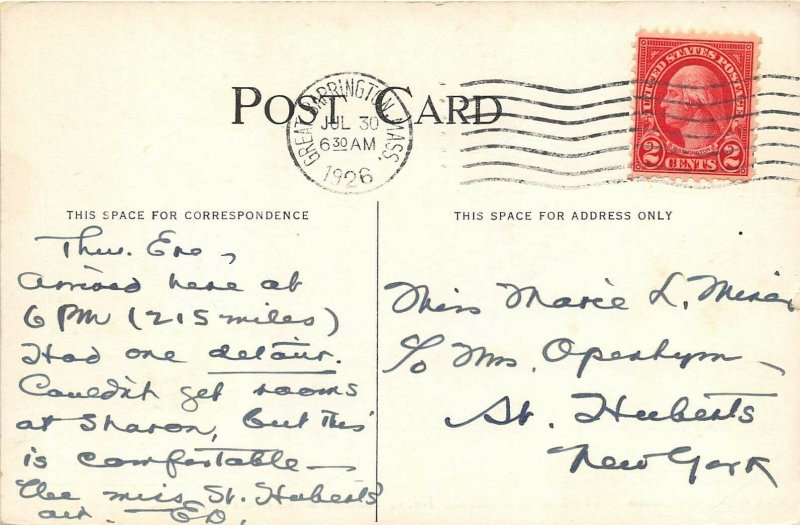 POST CARD
GREAT BARRINGTON, MASS.
JUL 30
6 30 AM
1926
UNITED STATES POSTAGE
WASHINGTON
2 CENTS 2
THIS SPACE FOR CORRESPONDENCE
Thu. Eve,
Arrived here at
6 PM (215 miles)
Had one detour.
Couldn't get rooms
at Sharon, but this
is comfortable—
We miss St. Huberts
air. ED.
THIS SPACE FOR ADDRESS ONLY
Miss Marie L.
c/o Mrs.
St. Huberts
New York